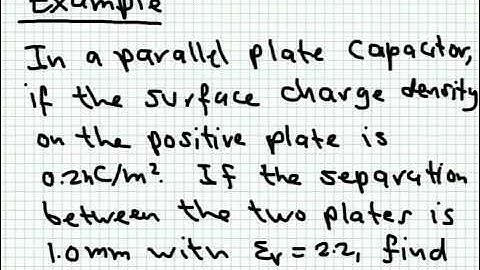 Example
In a parallel plate capacitor,
if the surface charge density
on the positive plate is
0.2nC/m². If the separation
between the two plates is
1.0mm with εr = 2.2, find